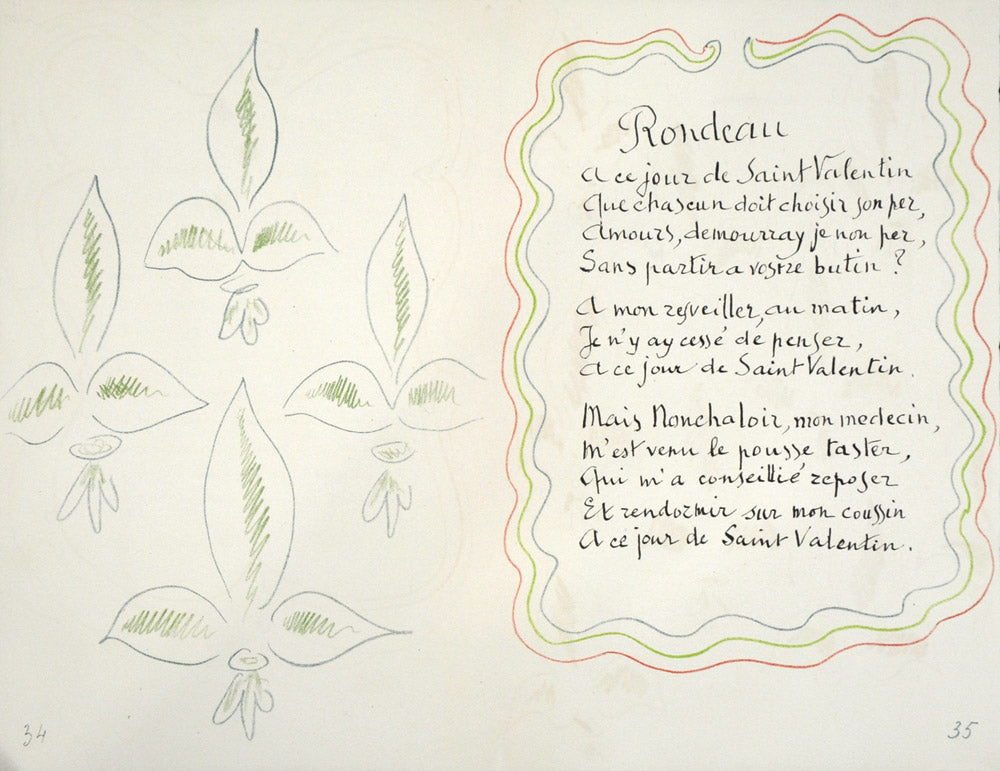 Rondeau
A ce jour de Saint Valentin
Que chascun doit choisir son per,
Amours, demourray je non per,
Sans partir a vostre butin ?
A mon resveiller, au matin,
Je n'y ay cessé de penser,
A ce jour de Saint Valentin.
Mais Nonchaloir, mon medecin,
M'est venu le pousse taster,
Qui m'a conseillié reposer
Et rendormir sur mon coussin
A ce jour de Saint Valentin.
34
35